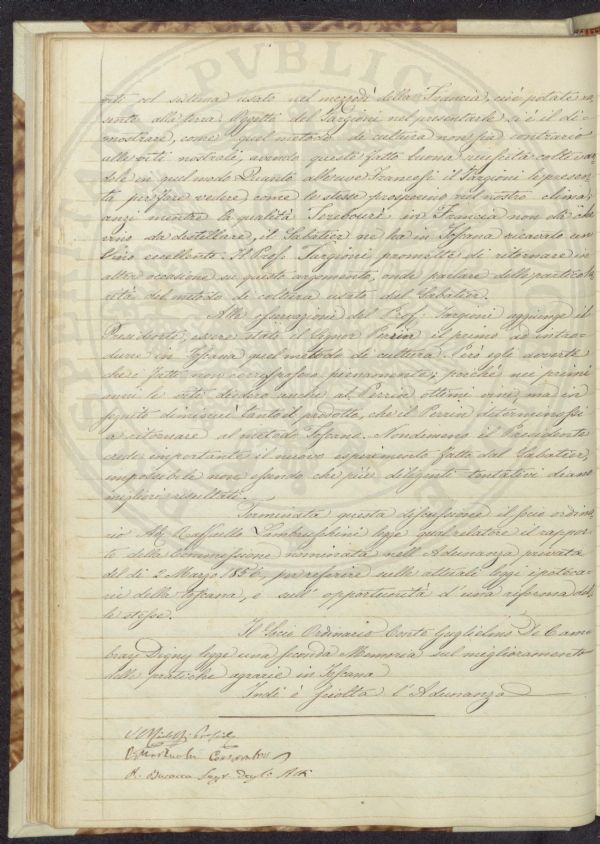 viti col sistema usato nel mezzodì della Francia, cioè potate ra
sente alla terra. Oggetto del Targioni nel presentarle si è il di=
mostrare, come quel metodo di cultura non sia contrario
alle viti nostrali, avendo queste fatto buona riuscita coltivan
dole in quel modo. Quanto alle uve francesi il Targioni le presen
ta per fare vedere, come le stesse prosperino nel nostro clima;
anzi mentre la qualità in Francia non dà che
vino da distillare, il Sabatier ne ha in Toscana ricavato un
vino eccellente. Il Prof. Targioni promette di ritornare in
altra occasione su questo argomento, onde parlare delle partico
rità del metodo di coltura usato dal Sabatier.
Alla osservazione del Prof: Targioni aggiunge il
Presidente, essere stato il Signor Perrin il primo ad intro=
durre in Toscana quel metodo di cultura. Però egli avverte
che i fatti non corrisposero pienamente; poichè nei primi
anni le viti diedero anche al Perrin ottimi vini, ma in
seguito diminuì tanto il prodotto, che il Perrin determinossi
a ritornare al metodo Toscano. Nondimeno il Presidente
crede importante il nuovo esperimento fatto dal Sabatier,
impossibile non essendo che più diligenti tentativi diano
migliori resultati.
Terminata questa discussione il socio ordina
rio Ab. Raffaello Lambruschini legge qual relatore il rappor
to della Commessione nominata nell'Adunanza privata
del dì 2 Marzo 1856, per referire sulle attuali leggi ipoteca=
rie della Toscana, e sull' opportunità d'una riforma del
le stesse.
Il Socio Ordinario Conte Guglielmo De Cam
bray Digny legge una seconda Memoria sul miglioramento
delle pratiche agrarie in Toscana
Indi è sciolta l'Adunanza
R. Busacca Segr. degli Atti